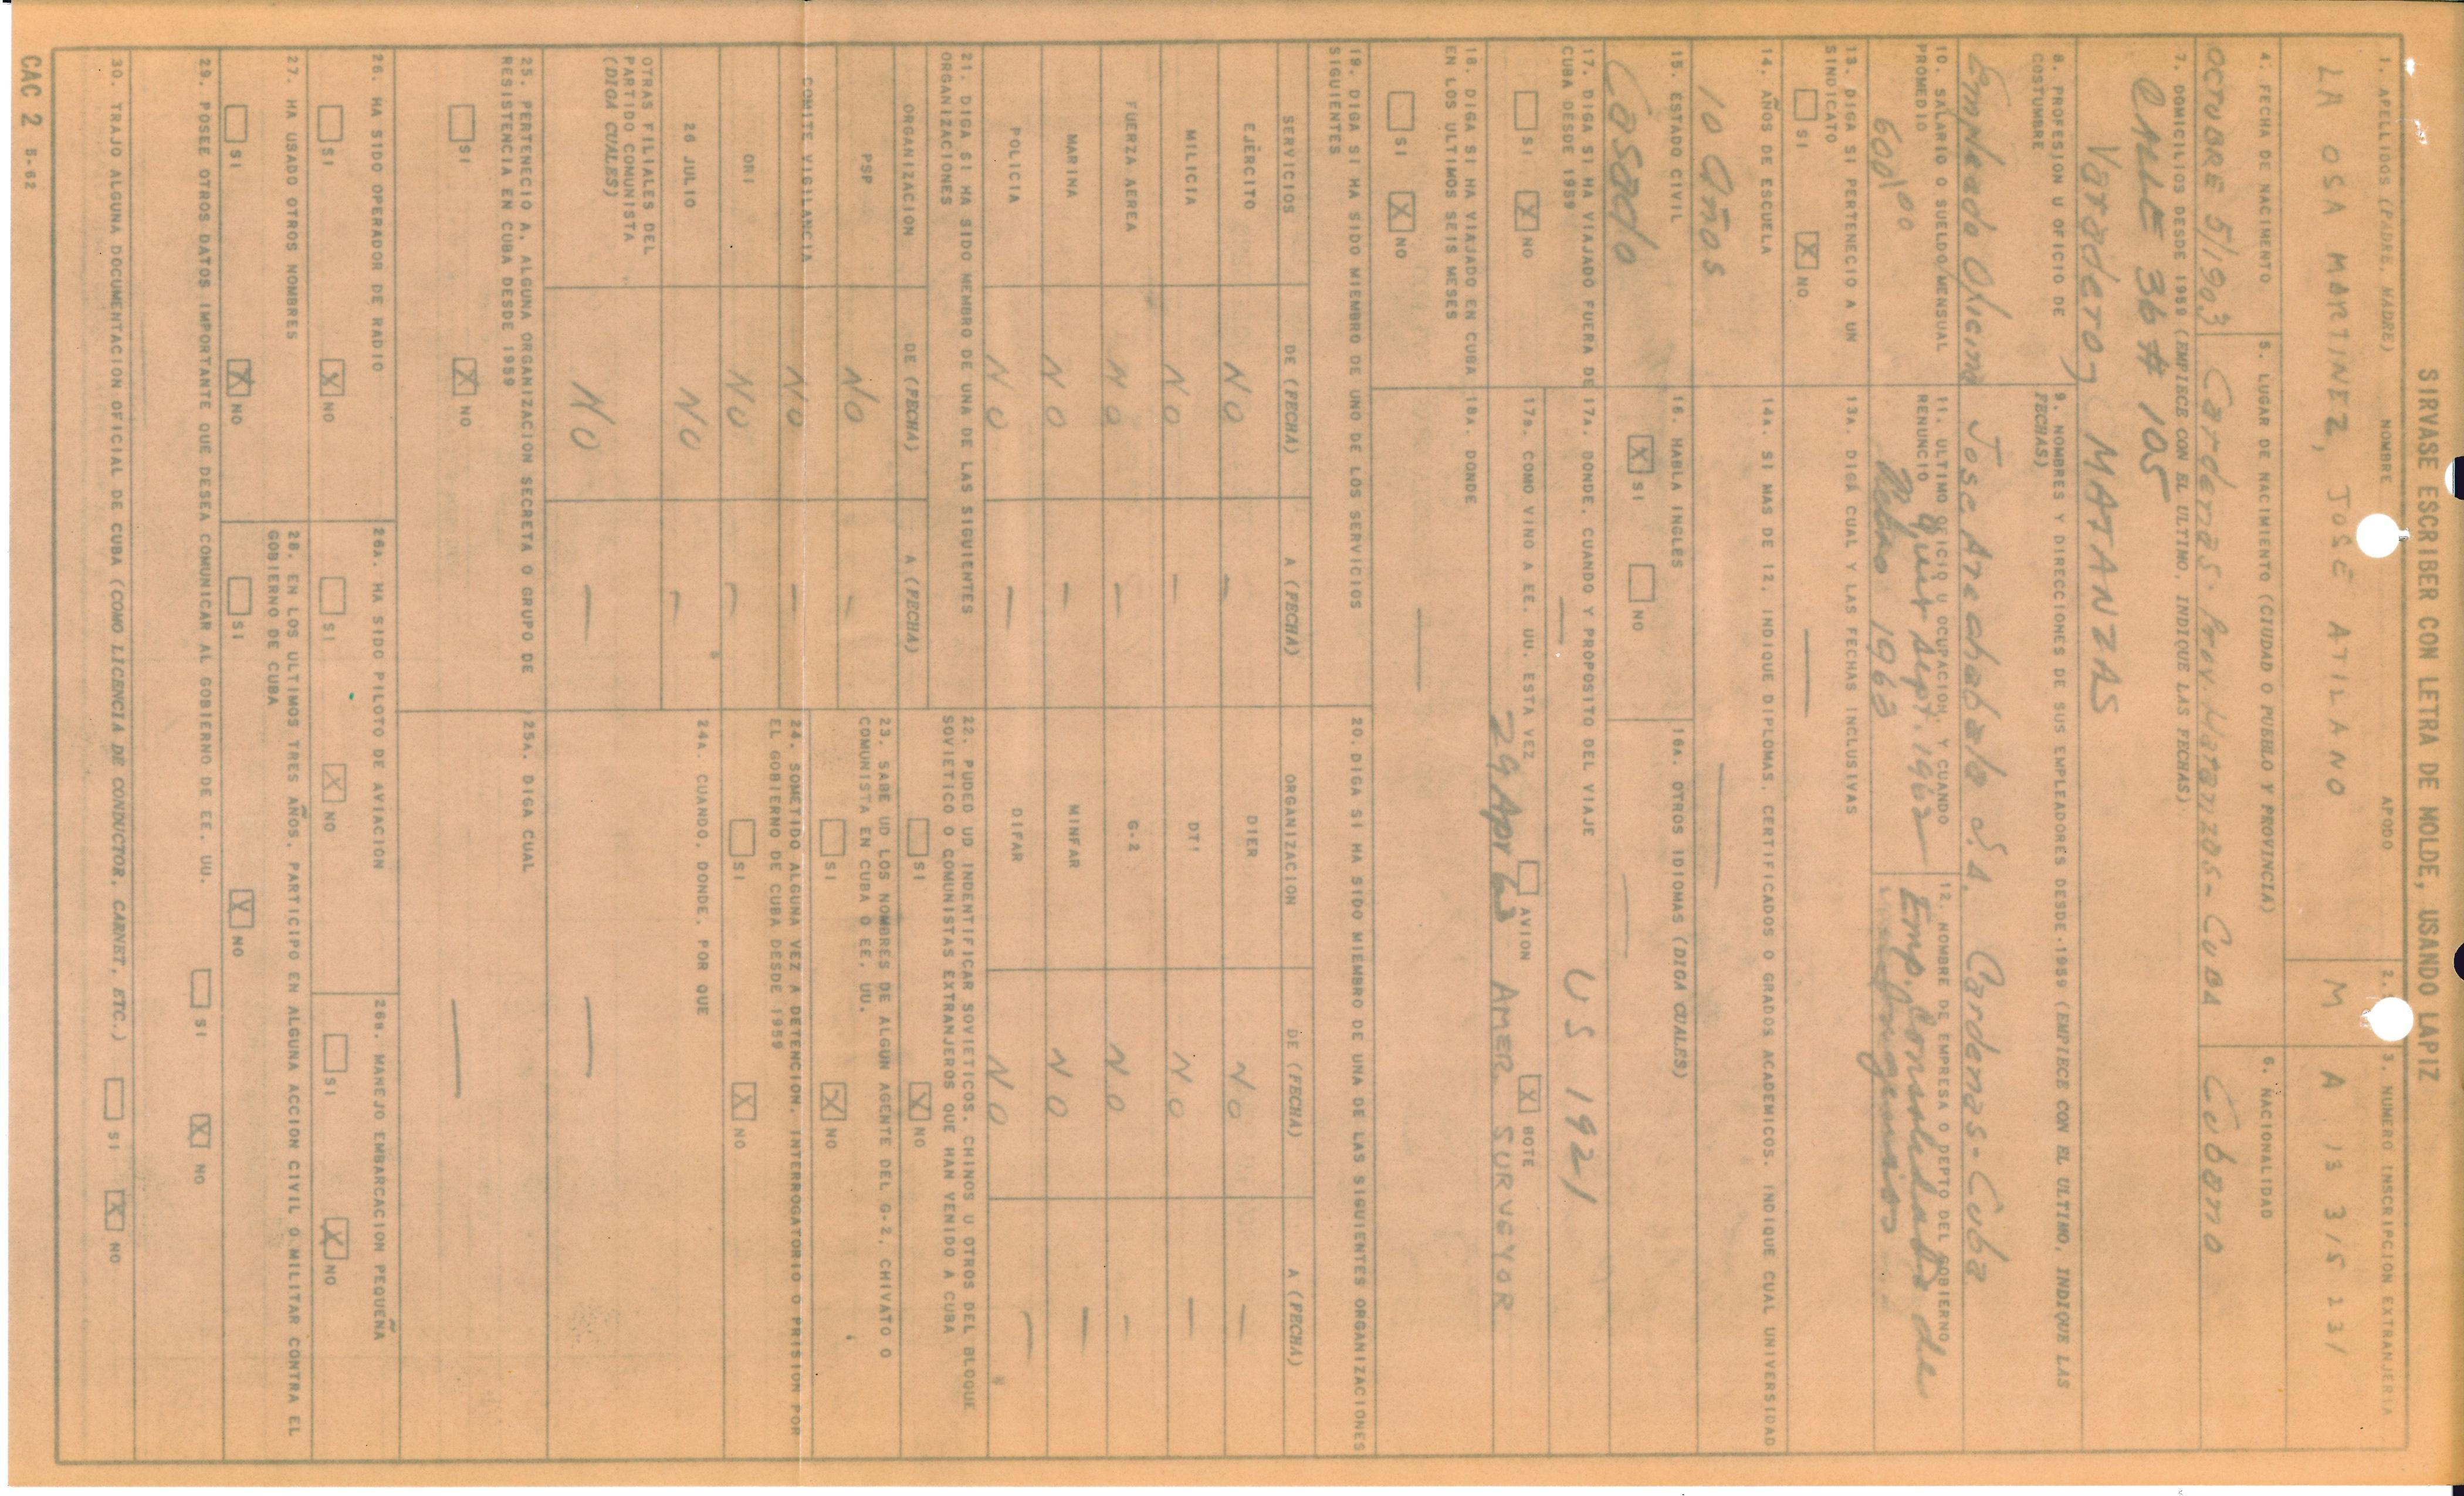 SIRVASE ESCRIBER CON LETRA DE MOLDE, USANDO LAPIZ
1. APELLIDOS (PADRE, MADRE) NOMBRE APODO
LA OSA MARTINEZ, JOSÉ ATILANO
2.
M
3. NUMERO INSCRIPCION EXTRANJERIA
A 13 315 231
4. FECHA DE NACIMENTO
OCTUBRE 5/1903
5. LUGAR DE NACIMIENTO (CIUDAD O PUEBLO Y PROVINCIA)
Cardenas. Prov. Matanzas - CUBA
6. NACIONALIDAD
Cubano
7. DOMICILIOS DESDE 1959 (EMPIECE CON EL ULTIMO, INDIQUE LAS FECHAS)
CALLE 36 # 105
Varadero, MATANZAS
8. PROFESION U OFICIO DE COSTUMBRE
Empleado Oficina
9. NOMBRES Y DIRECCIONES DE SUS EMPLEADORES DESDE 1959 (EMPIECE CON EL ULTIMO, INDIQUE LAS FECHAS)
Jose Arechabala S.A. Cardenas - Cuba
10. SALARIO O SUELDO MENSUAL PROMEDIO
600|00
11. ULTIMO OFICIO U OCUPACION, Y CUANDO RENUNCIO
sept. 1962
1963
12. NOMBRE DE EMPRESA O DEPTO DEL GOBIERNO
Emp. Consolidada de
13. DIGA SI PERTENECIO A UN SINDICATO
SI X NO
13A. DIGA CUAL Y LAS FECHAS INCLUSIVAS
—
14. AÑOS DE ESCUELA
10 Años
14A. SI MAS DE 12, INDIQUE DIPLOMAS, CERTIFICADOS O GRADOS ACADEMICOS. INDIQUE CUAL UNIVERSIDAD
—
15. ESTADO CIVIL
Casado
16. HABLA INGLES
X SI NO
16A. OTROS IDIOMAS (DIGA CUALES)
—
17. DIGA SI HA VIAJADO FUERA DE CUBA DESDE 1959
SI X NO
17A. DONDE, CUANDO Y PROPOSITO DEL VIAJE
— US 1921
17B. COMO VINO A EE. UU. ESTA VEZ AVION X BOTE
29 Apr 63 AMER. SURVEYOR
18. DIGA SI HA VIAJADO EN CUBA EN LOS ULTIMOS SEIS MESES
SI X NO
18A. DONDE
—
19. DIGA SI HA SIDO MIEMBRO DE UNO DE LOS SERVICIOS SIGUIENTES
SERVICIOS DE (FECHA) A (FECHA)
EJÉRCITO NO —
MILICIA NO —
FUERZA AEREA NO —
MARINA NO —
POLICIA NO —
20. DIGA SI HA SIDO MIEMBRO DE UNA DE LAS SIGUIENTES ORGANIZACIONES
ORGANIZACION DE (FECHA) A (FECHA)
DIER NO —
DTI NO —
G-2 NO —
MINFAR NO —
DIFAR NO —
21. DIGA SI HA SIDO MEMBRO DE UNA DE LAS SIGUIENTES ORGANIZACIONES
ORGANIZACION DE (FECHA) A (FECHA)
PSP NO —
COMITE VIGILANCIA NO —
ORI NO —
26 JULIO NO —
OTRAS FILIALES DEL PARTIDO COMUNISTA (DIGA CUALES) NO —
22. PUEDO UD INDENTIFICAR SOVIETICOS, CHINOS U OTROS DEL BLOQUE SOVIETICO O COMUNISTAS EXTRANJEROS QUE HAN VENIDO A CUBA
SI X NO
23. SABE UD LOS NOMBRES DE ALGUN AGENTE DEL G-2, CHIVATO O COMUNISTA EN CUBA O EE. UU.
SI X NO
24. SOMETIDO ALGUNA VEZ A DETENCION, INTERROGATORIO O PRISION POR EL GOBIERNO DE CUBA DESDE 1959
SI X NO
24A. CUANDO, DONDE, POR QUE
—
25. PERTENECIO A, ALGUNA ORGANIZACION SECRETA O GRUPO DE RESISTENCIA EN CUBA DESDE 1959
SI X NO
25A. DIGA CUAL
—
26. HA SIDO OPERADOR DE RADIO
SI X NO
26A. HA SIDO PILOTO DE AVIACION
SI X NO
26B. MANEJO EMBARCACION PEQUEÑA
SI X NO
27. HA USADO OTROS NOMBRES
SI X NO
28. EN LOS ULTIMOS TRES AÑOS, PARTICIPO EN ALGUNA ACCION CIVIL O MILITAR CONTRA EL GOBIERNO DE CUBA
SI X NO
29. POSEE OTROS DATOS IMPORTANTE QUE DESEA COMUNICAR AL GOBIERNO DE EE. UU. SI X NO
30. TRAJO ALGUNA DOCUMENTACION OFICIAL DE CUBA (COMO LICENCIA DE CONDUCTOR, CARNET, ETC.) SI X NO
CAC 2 5-62